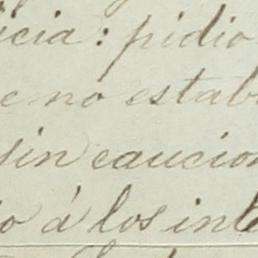 icia: pidio
e no estab
sin caucion
io á los inte